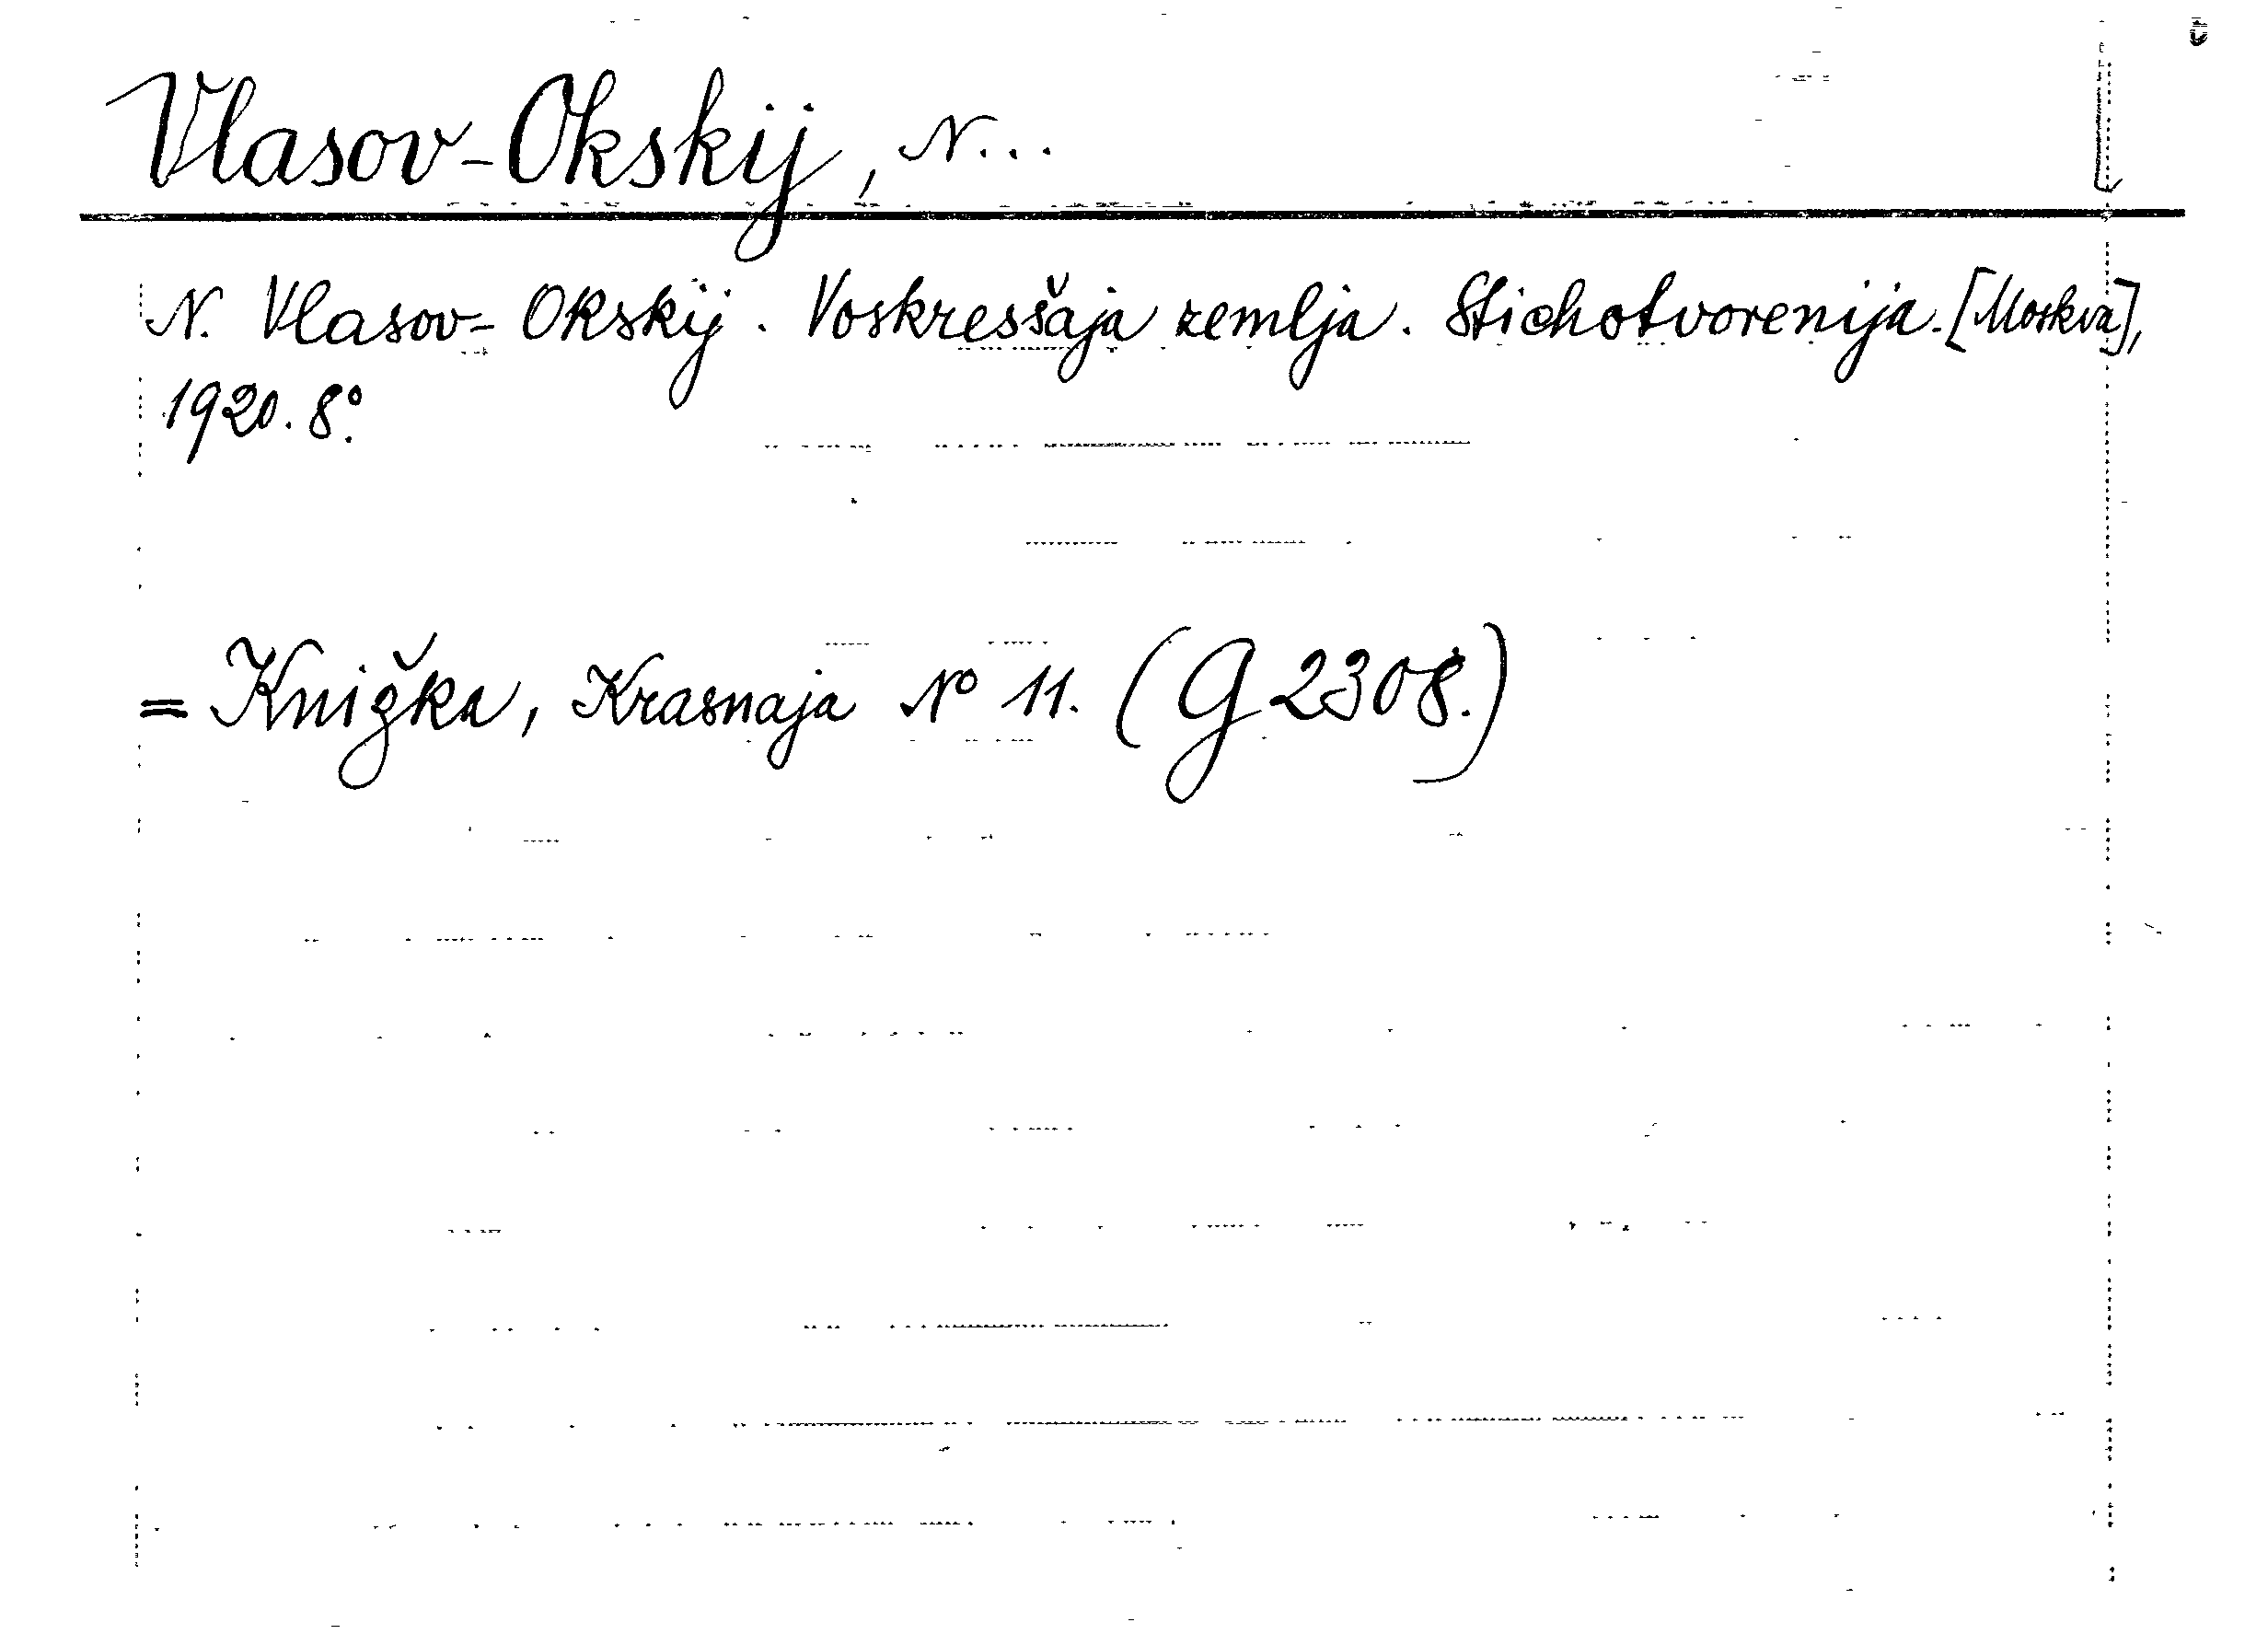 Vlasov-Okskij, N...
N. Vlasov-Okskij. Voskresšaja zemlja. Stichotvorenija. [Moskva],
1920. 8º.
= Knižka, Krasnaja Nº 11. (G 2308.)